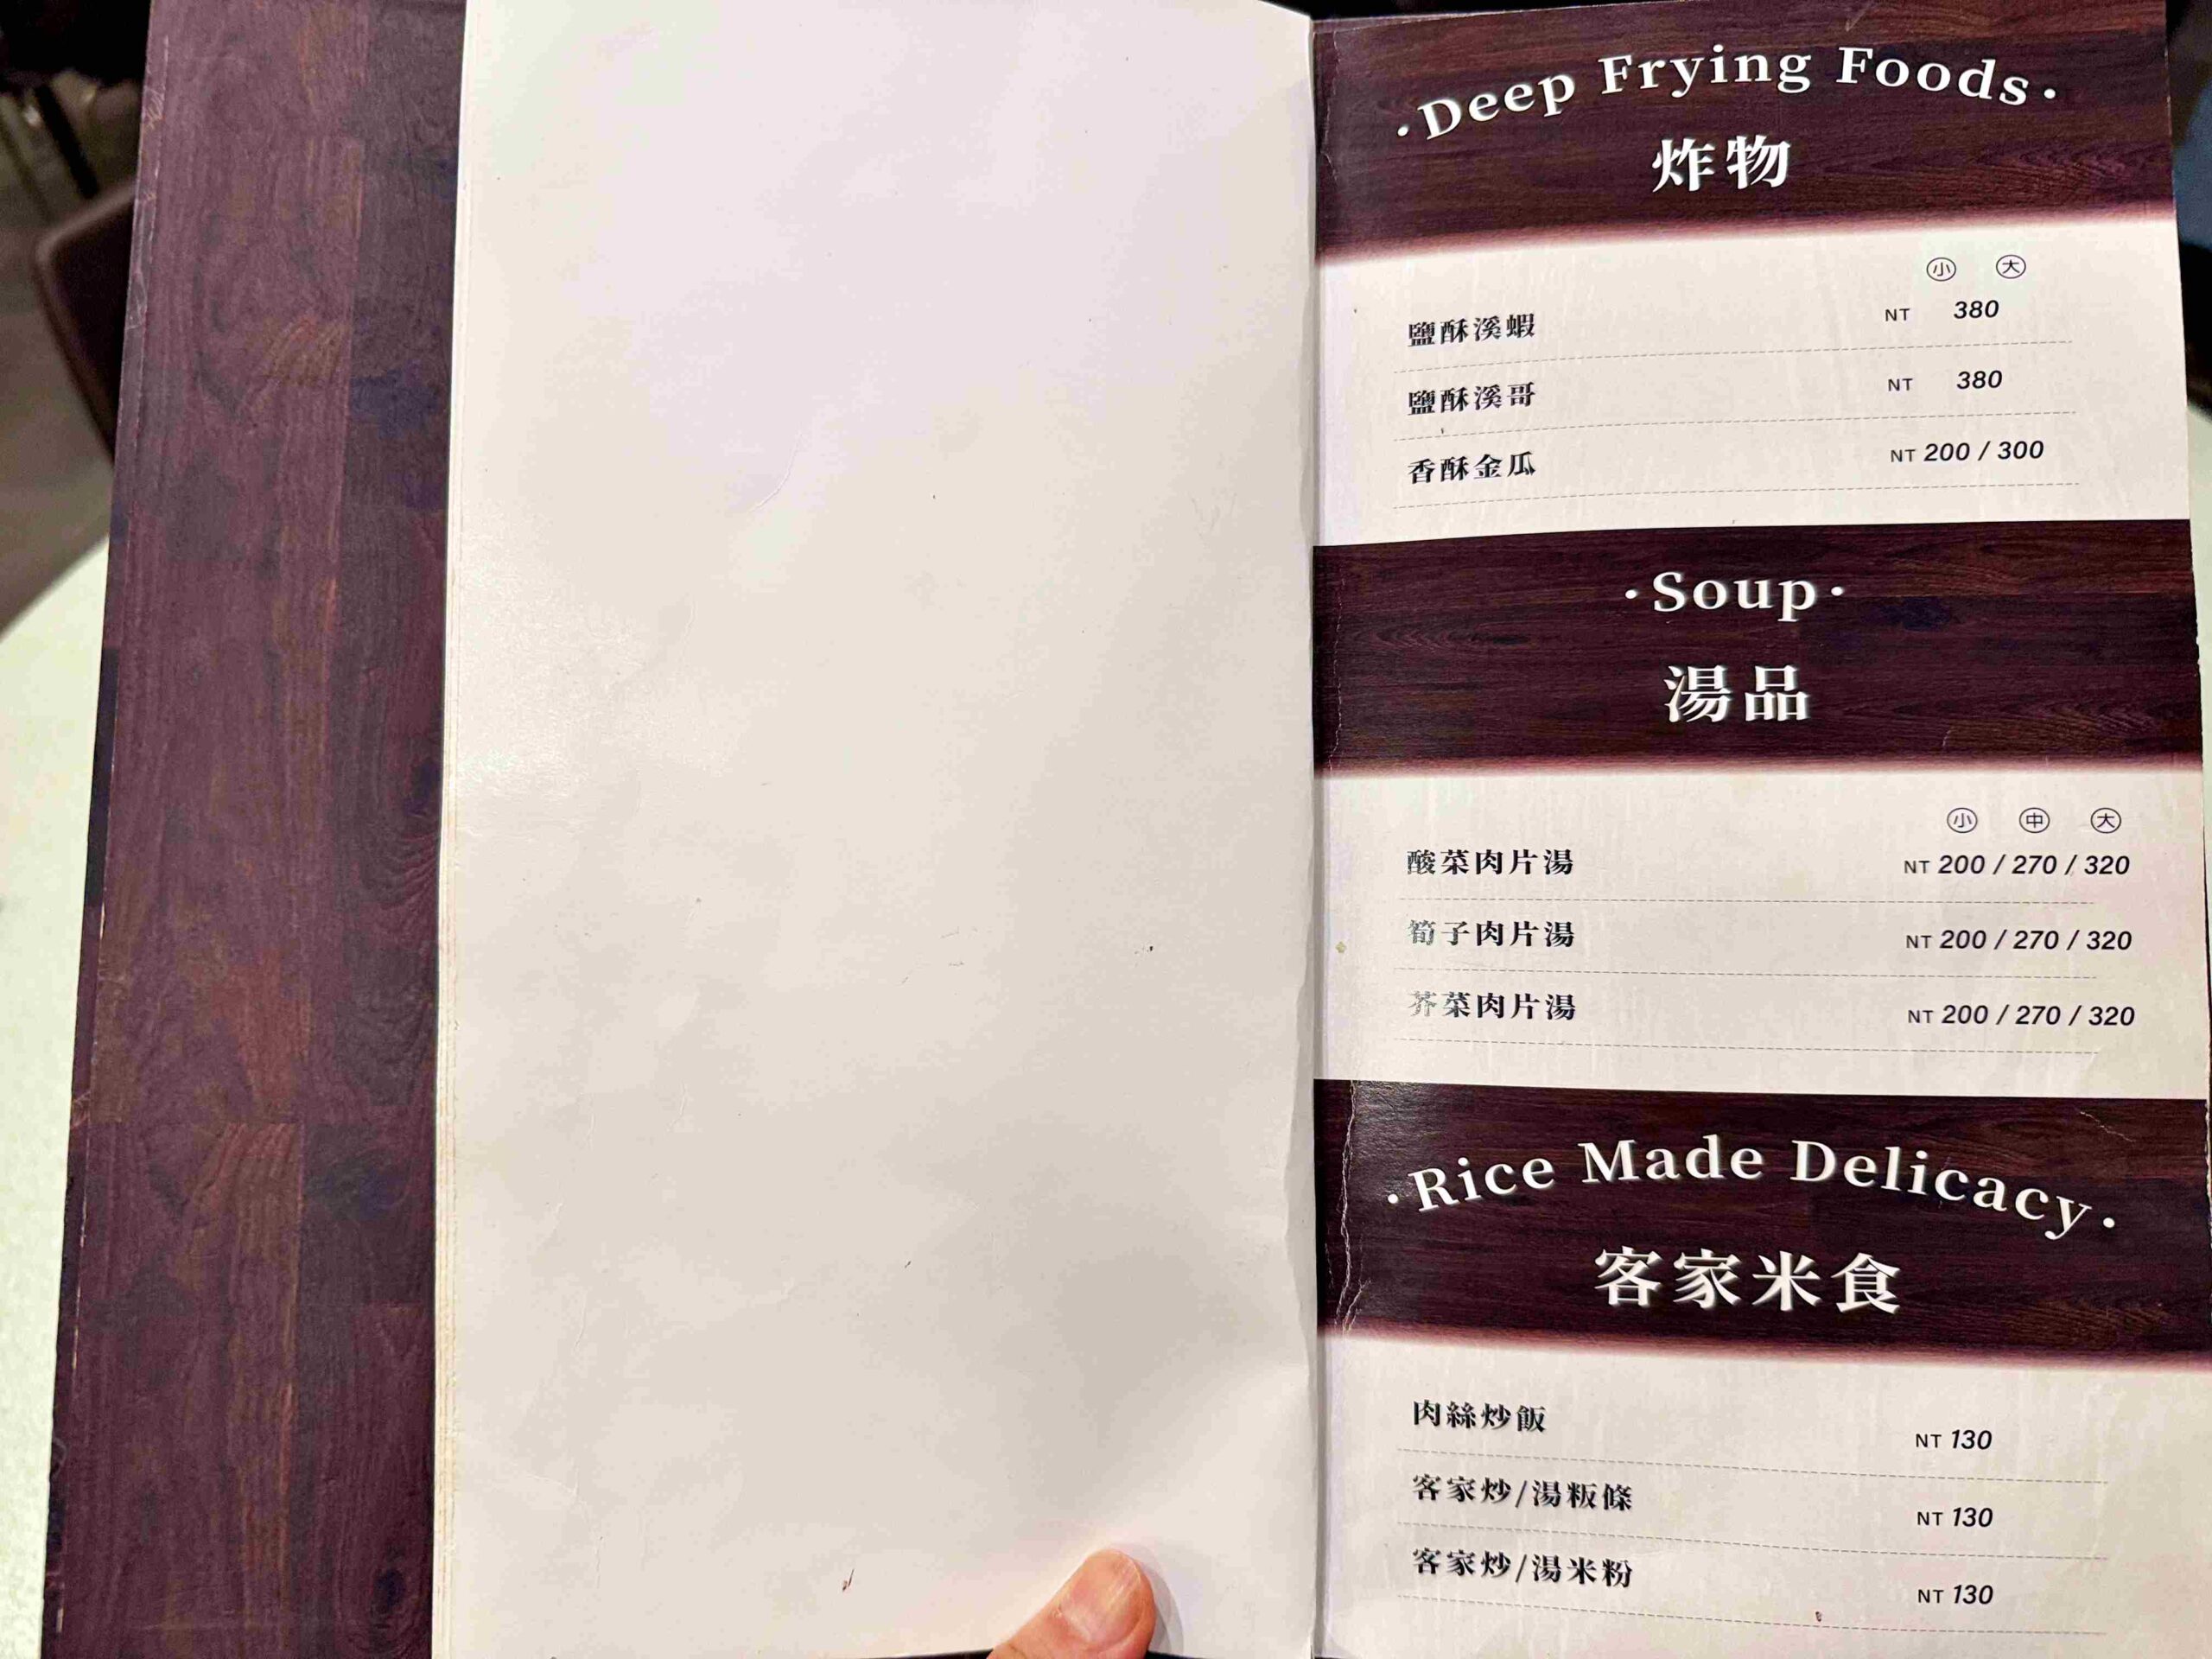 ·Deep Frying Foods·
炸物
小 大
鹽酥溪蝦 NT 380
鹽酥溪哥 NT 380
香酥金瓜 NT 200 / 300
·Soup·
湯品
小 中 大
酸菜肉片湯 NT 200 / 270 / 320
筍子肉片湯 NT 200 / 270 / 320
芥菜肉片湯 NT 200 / 270 / 320
·Rice Made Delicacy·
客家米食
肉絲炒飯 NT 130
客家炒/湯粄條 NT 130
客家炒/湯米粉 NT 130